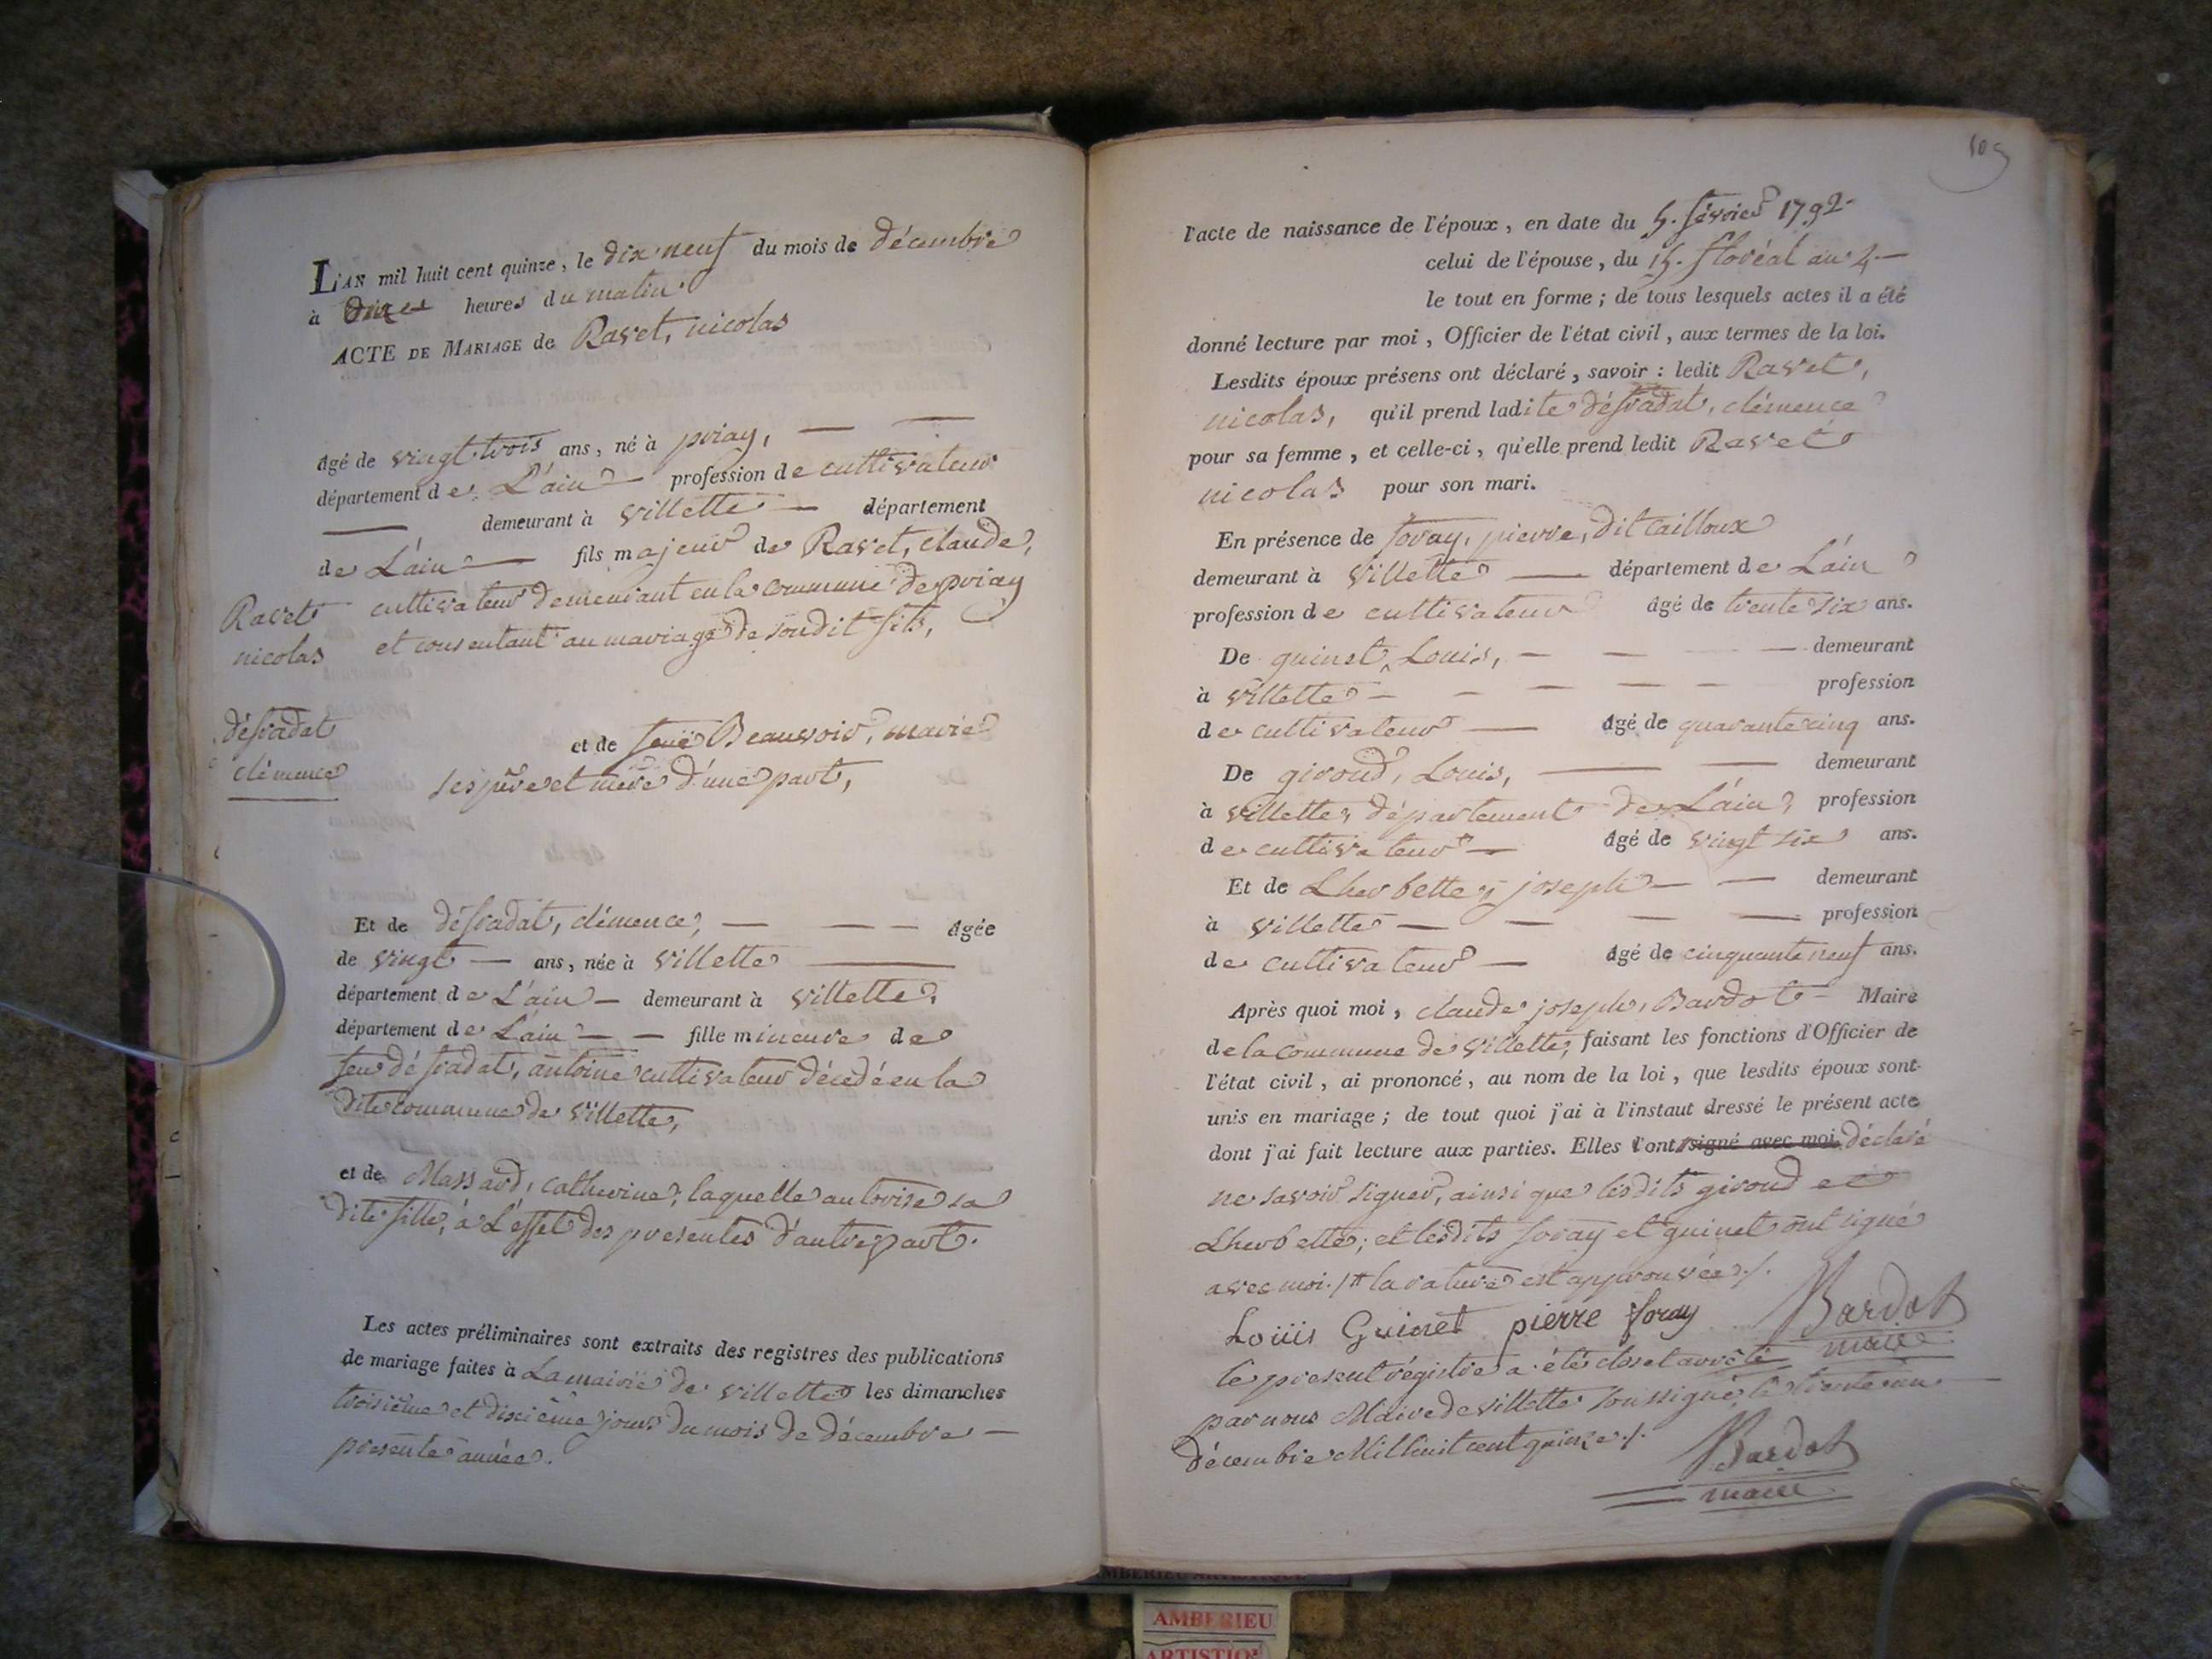 L'AN mil huit cent quinze, le dix neuf du mois de décembre
à heures du matin.
ACTE DE MARIAGE de Ravet, nicolas
âgé de vingt trois ans, né à priay,
département de L'ain profession de cultivateur
demeurant à villette département
de L'ain fils majeur de Ravet, claude,
cultivateur demeurant en la commune de priay
et consentant au mariage de sondit fils,
Ravet
nicolas
désradat
clémence
et de feuë Beauvoir, marie
ses père et mère d'une part,
Et de désradat, clémence, âgée
de vingt ans, née à villette
département de L'ain demeurant à villette,
département de L'ain fille mineure de
feu désradat, antoine cultivateur décedé en la
dite commune de villette,
et de Massard, catherine, laquelle autorise sa
dite fille, à L'effet des presentes d'autre part.
Les actes préliminaires sont extraits des registres des publications
de mariage faites à La mairie de villette les dimanches
troisième et dixième jours du mois de décembre
presente année.
109
l'acte de naissance de l'époux, en date du 5. février 1792
celui de l'épouse, du 15. floréal an 4.
le tout en forme; de tous lesquels actes il a été
donné lecture par moi, Officier de l'état civil, aux termes de la loi.
Lesdits époux présens ont déclaré, savoir: ledit Ravet,
nicolas, qu'il prend ladite désradat, clémence
pour sa femme, et celle-ci, qu'elle prend ledit Ravet
nicolas pour son mari.
En présence de foray, pierre, dit cailloux
demeurant à villette département de L'ain
profession de cultivateur âgé de trente six ans.
De guinet, Louis, demeurant
à villette profession
de cultivateur âgé de quarante cinq ans.
De giroud, Louis, demeurant
à villette, département de L'ain, profession
de cultivateur âgé de vingt six ans.
Et de Lherbette, joseph demeurant
à villette profession
de cultivateur âgé de cinquante neuf ans.
Après quoi moi, claude joseph, Bardot Maire
de la commune de villette, faisant les fonctions d'Officier de
l'état civil, ai prononcé, au nom de la loi, que lesdits époux sont
unis en mariage; de tout quoi j'ai à l'instaut dressé le présent acte
dont j'ai fait lecture aux parties. Elles l'ont signé avec moi déclaré
ne savoir signer, ainsi que lesdits giroud et
Lherbette; et lesdits foray et guinet ont signé
avec moi. la rature est approuvée./.
Loüis Guinet pierre foray Bardot
maire
le present régistre a été clos et arrêté
par nous Maire de villette soussigné, le trente un
décembre Mil huit cent quinze./.
Bardot
maire
AMBERIEU ARTISTIQUE
AMBERIEU
ARTISTIQ